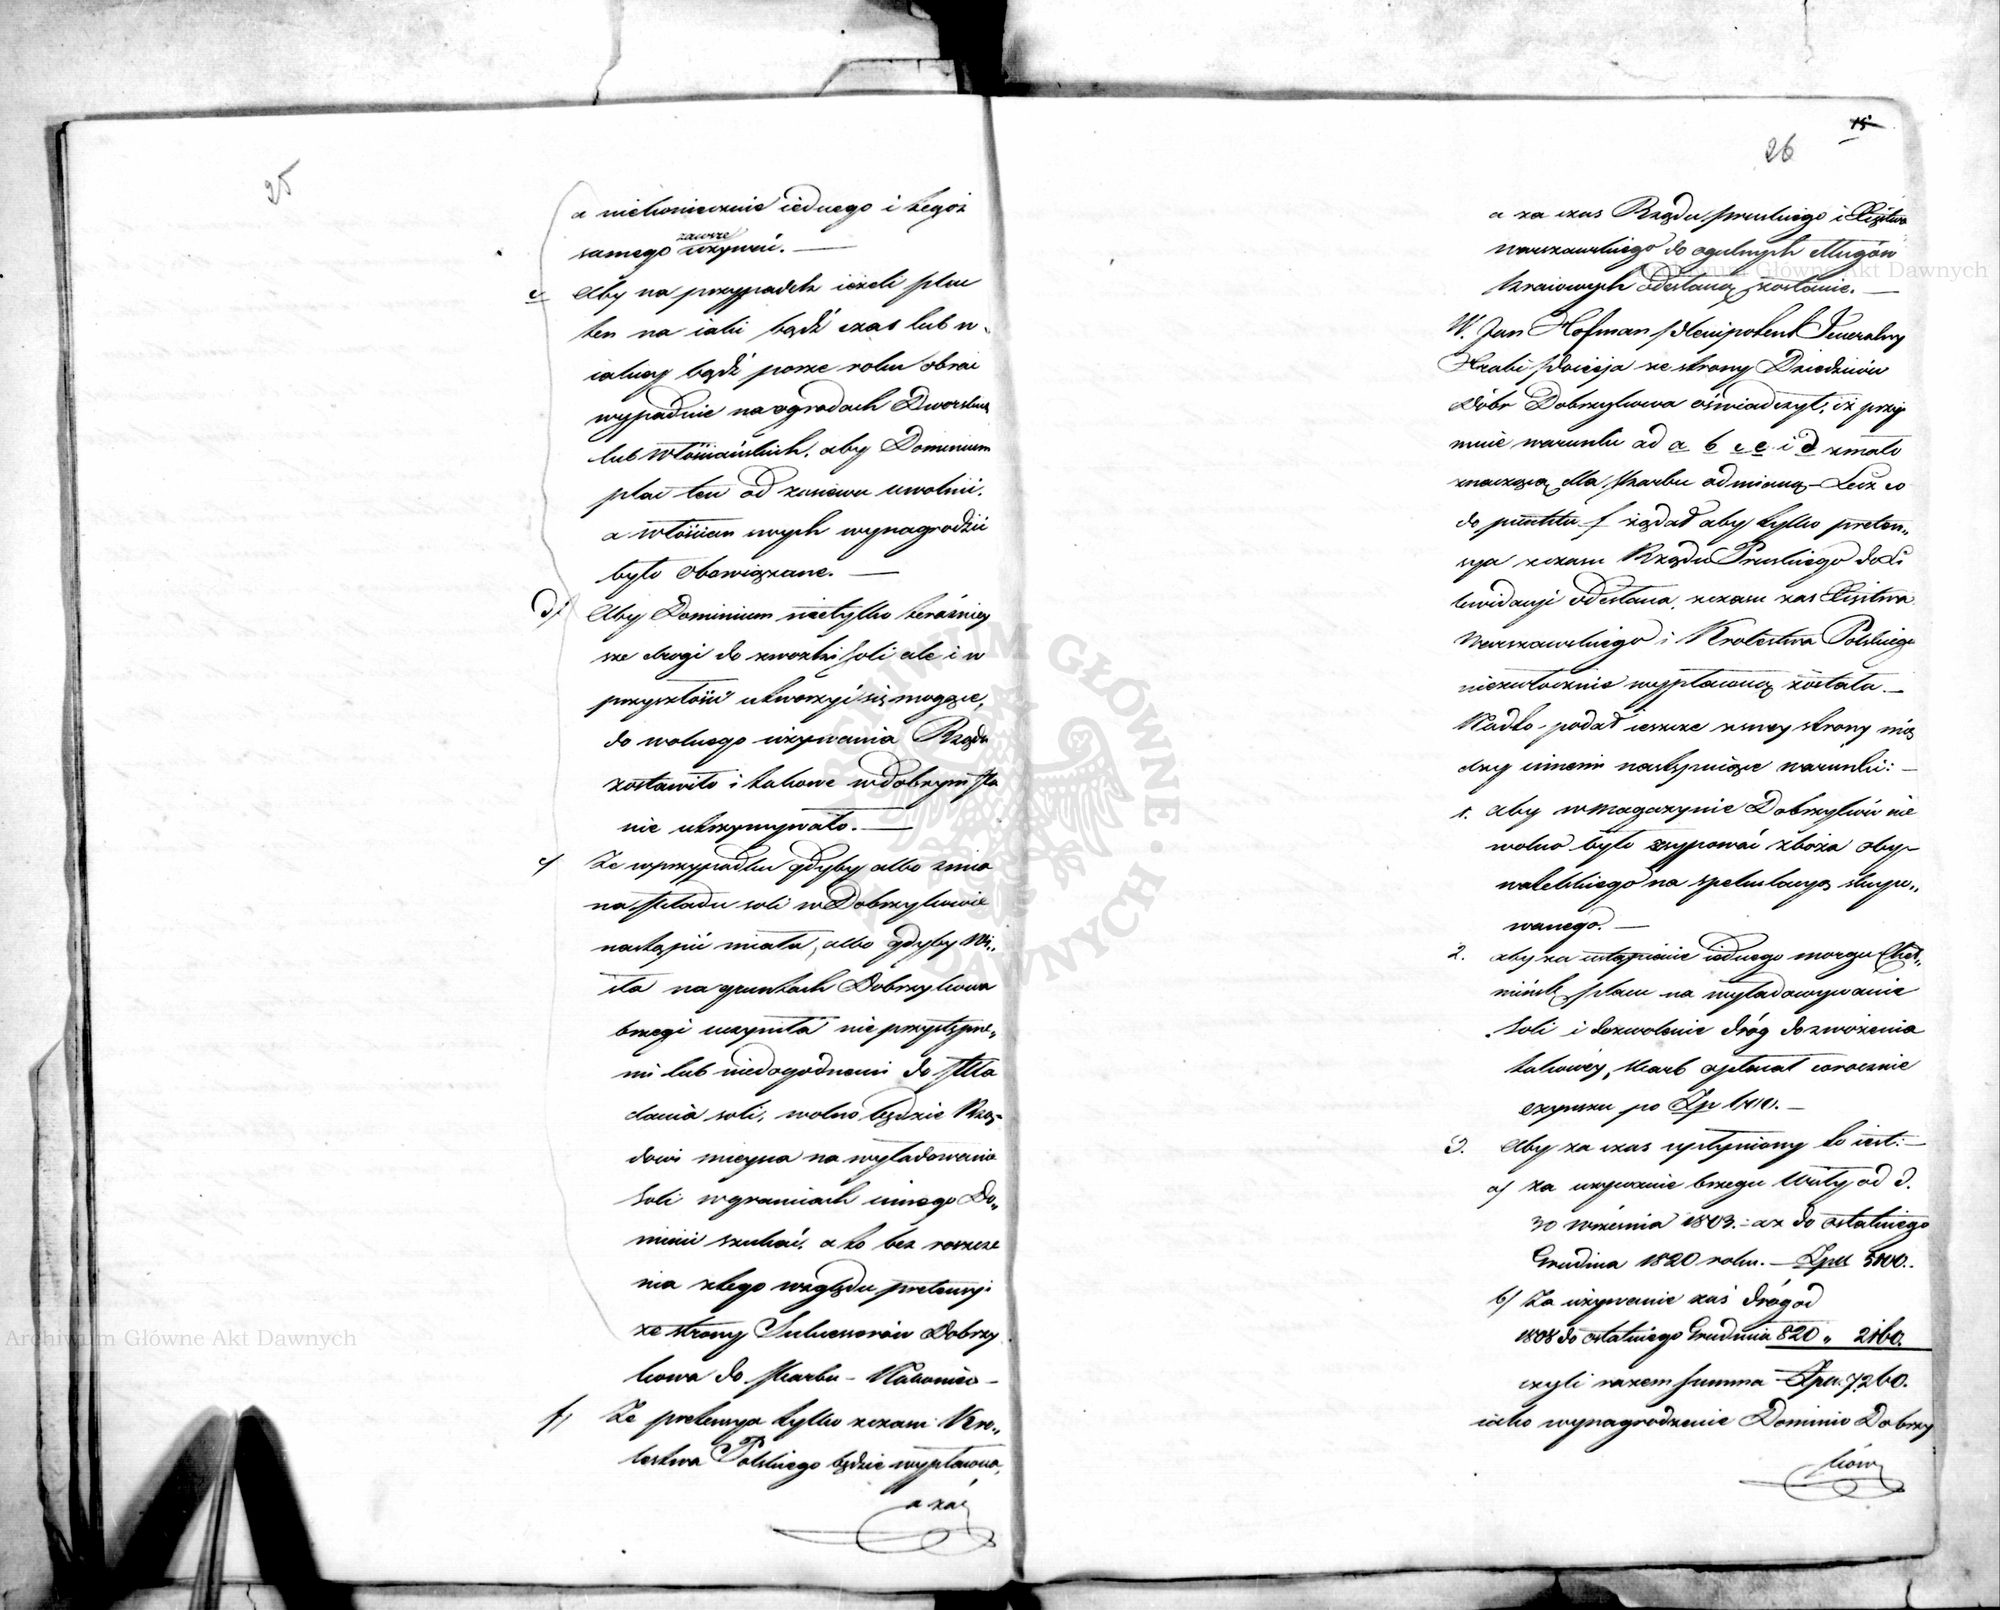 25
a niekoniecznie iednego i tegoż
zawsze
samego używać. —
c Aby na przypadek ieżeli plac
ten na iaki bądź czas lub w
iakiey bądź porze roku obrać
wypadnie na ogrodach Dworskich
lub Włościańskich, aby Dominium
plac ten od zasiewu uwolnić,
a włościan swych wynagrodzić
było obowiązane. —
d/ Aby Dominium nietylko teraźniey
sze drogi do zwozki soli ale i w
przyszłości utworzyć się mogące,
do wolnego używania Rządu
zostawiło i takowe w dobrym sta
nie utrzymywało. —
e/ Że w przypadku gdyby albo zmia
na składu soli w Dobrzykowie
nastąpić miała, albo gdyby Wi„
sła na gruntach Dobrzykowa
brzegi uczyniła nie przystępne„
mi lub niedogodnemi do skła
dania soli, wolno będzie Rzą„
dowi mieysca na wyładowanie
Soli w granicach innego Do„
minii szukać, a to bez roszcze
nia z tego względu pretensyi
ze strony Sukcessorów Dobrzy
kowa do Skarbu – Nakoniec –
f/ Że pretensya tylko z czasu Kro„
lestwa Polskiego będzie wypłacona,
a zaś
15
26
a za czas Rządu pruskiego i Xięstwa
warszawskiego do ogulnych długów
kraiowych odesłaną zostanie. —
W. Jan Hofman Plenipotent Generalny
Hrabi ze strony Dziedziców
Dóbr Dobrzykowa oświadczył, iż przy
muie warunki ad a b c e i d z mało
znaczącą dla Skarbu odmianą – Lecz co
do punktu f żądał aby tylko preten„
sya z czasu Rządu Pruskiego do Li
kwidacyi odesłana, z czasu zas Xięstwa
Warszawskiego i Krolestwa Polskiego
niezwłocznie wypłaconą została. —
Nadto podał ieszcze z swey strony mię
dzy innemi następuiące warunki: —
1. Aby w Magazynie Dobrzyków nie
wolno było zsypować zboża oby„
watelskiego na spekulacyą skupo„
wanego. —
2. aby za ustąpienie iednego morgu Cheł„
mińsk placu na wyładowywanie
Soli i dozwolenie dróg do zwożenia
takowéy, Skarb opłacał corocznie
czynszu po Zp —
3. Aby za czas upłyniony to iest: —
a/ za używanie brzegu Wisły od d.
30 września 1803. – aż do ostatniego
Grudnia 1820 roku. — Zpol
b/ Za używanie zaś dróg od
1808 do ostatniego Grudnia 820 „ 2160.
czyli razem summa Zpol. 7260.
iako wynagrodzenie Dominio Dobrzy
ków
Archiwum Główne Akt Dawnych
Archiwum Główne Akt Dawnych
ARCHIWUM GŁÓWNE AKT DAWNYCH